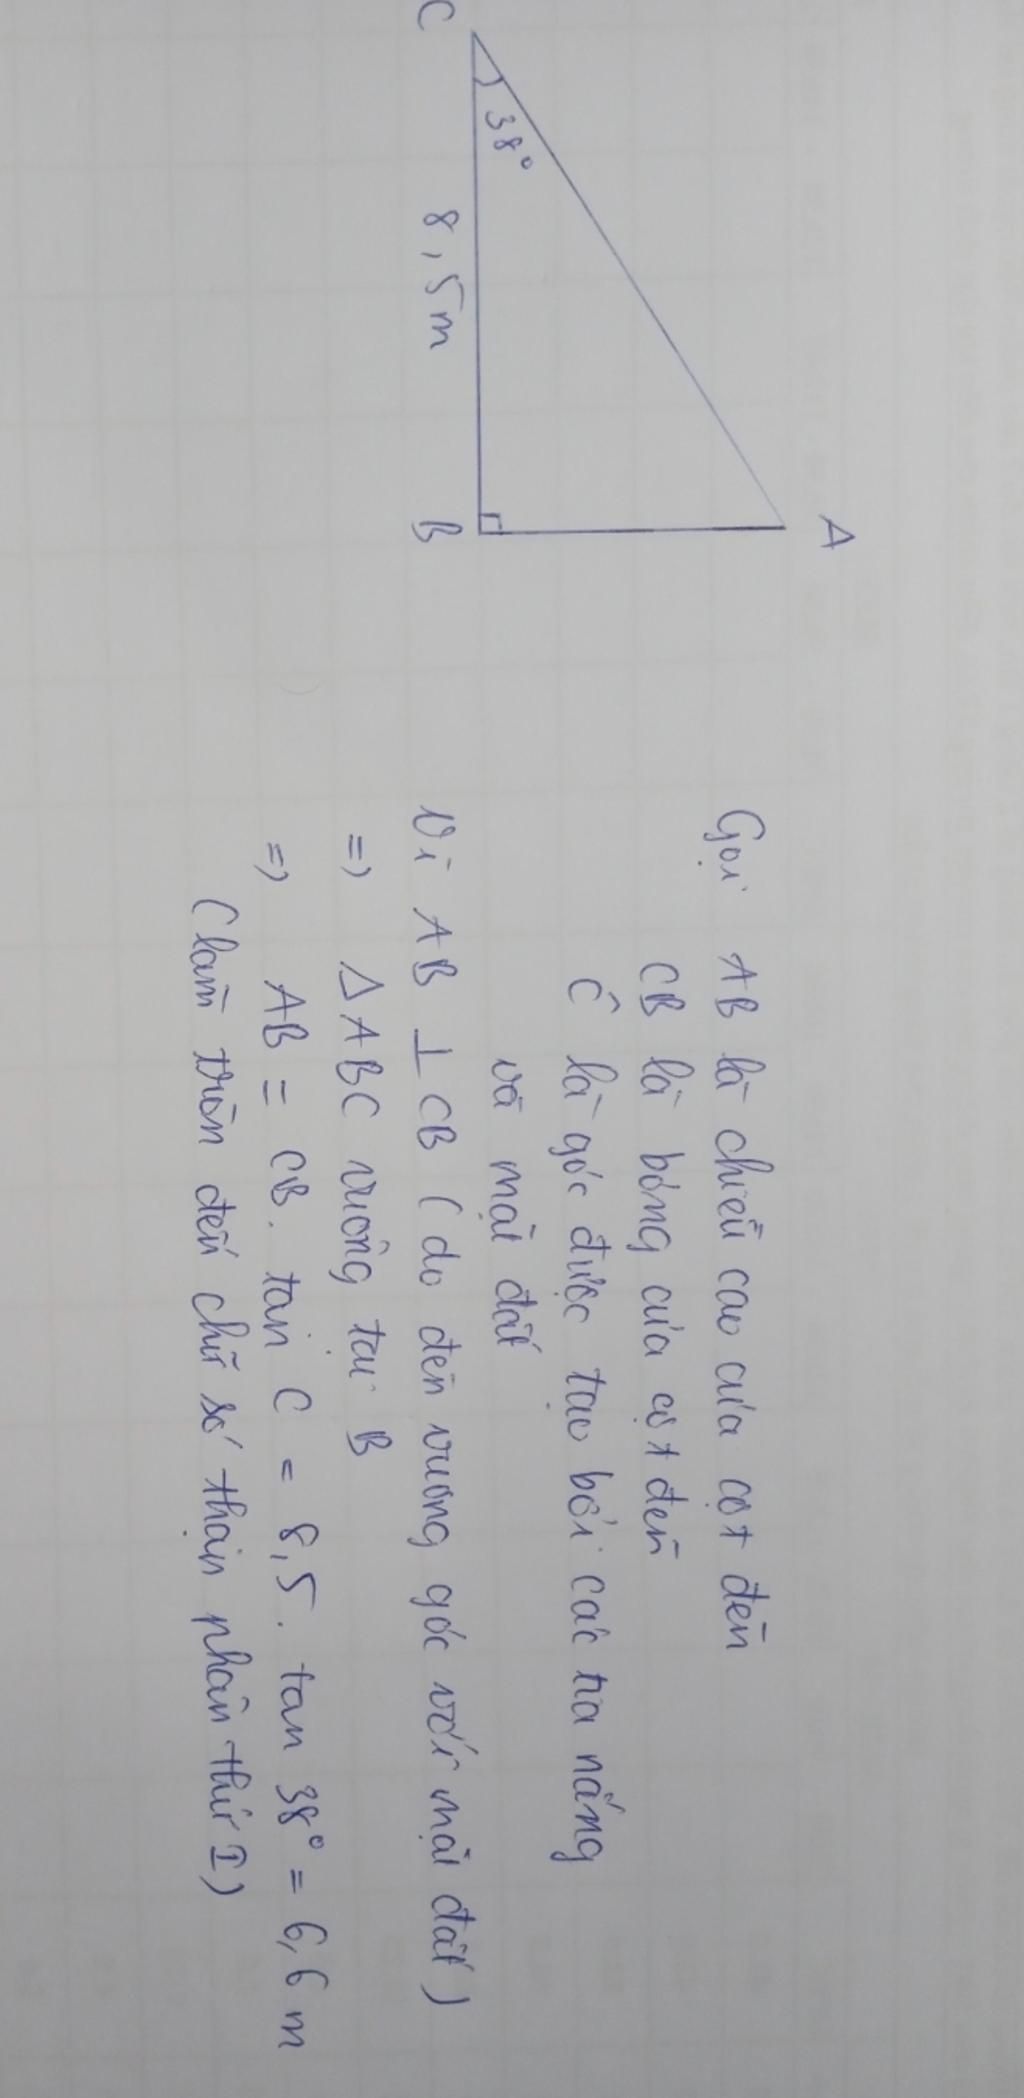 A
C
38°
8,5m
B
Gọi AB là chiều cao của cột đèn
CB là bóng của cột đèn
Ĉ là góc được tạo bởi các tia nắng
và mặt đất
Vì AB ⊥ CB (do đèn vuông góc với mặt đất)
=> ΔABC vuông tại B
=> AB = CB. tan C = 8,5. tan 38° = 6,6 m
(làm tròn đến chữ số thập phân thứ I)